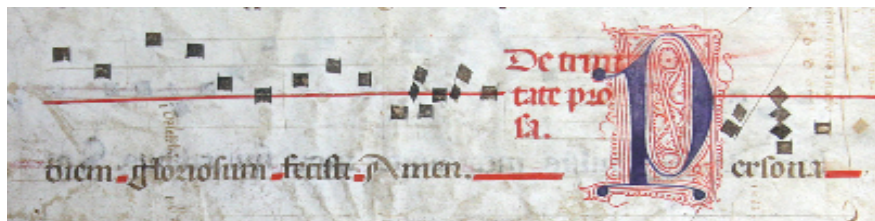 diem gloriosum fecisti Amen.
De trini
tate pro
sa.
Persona